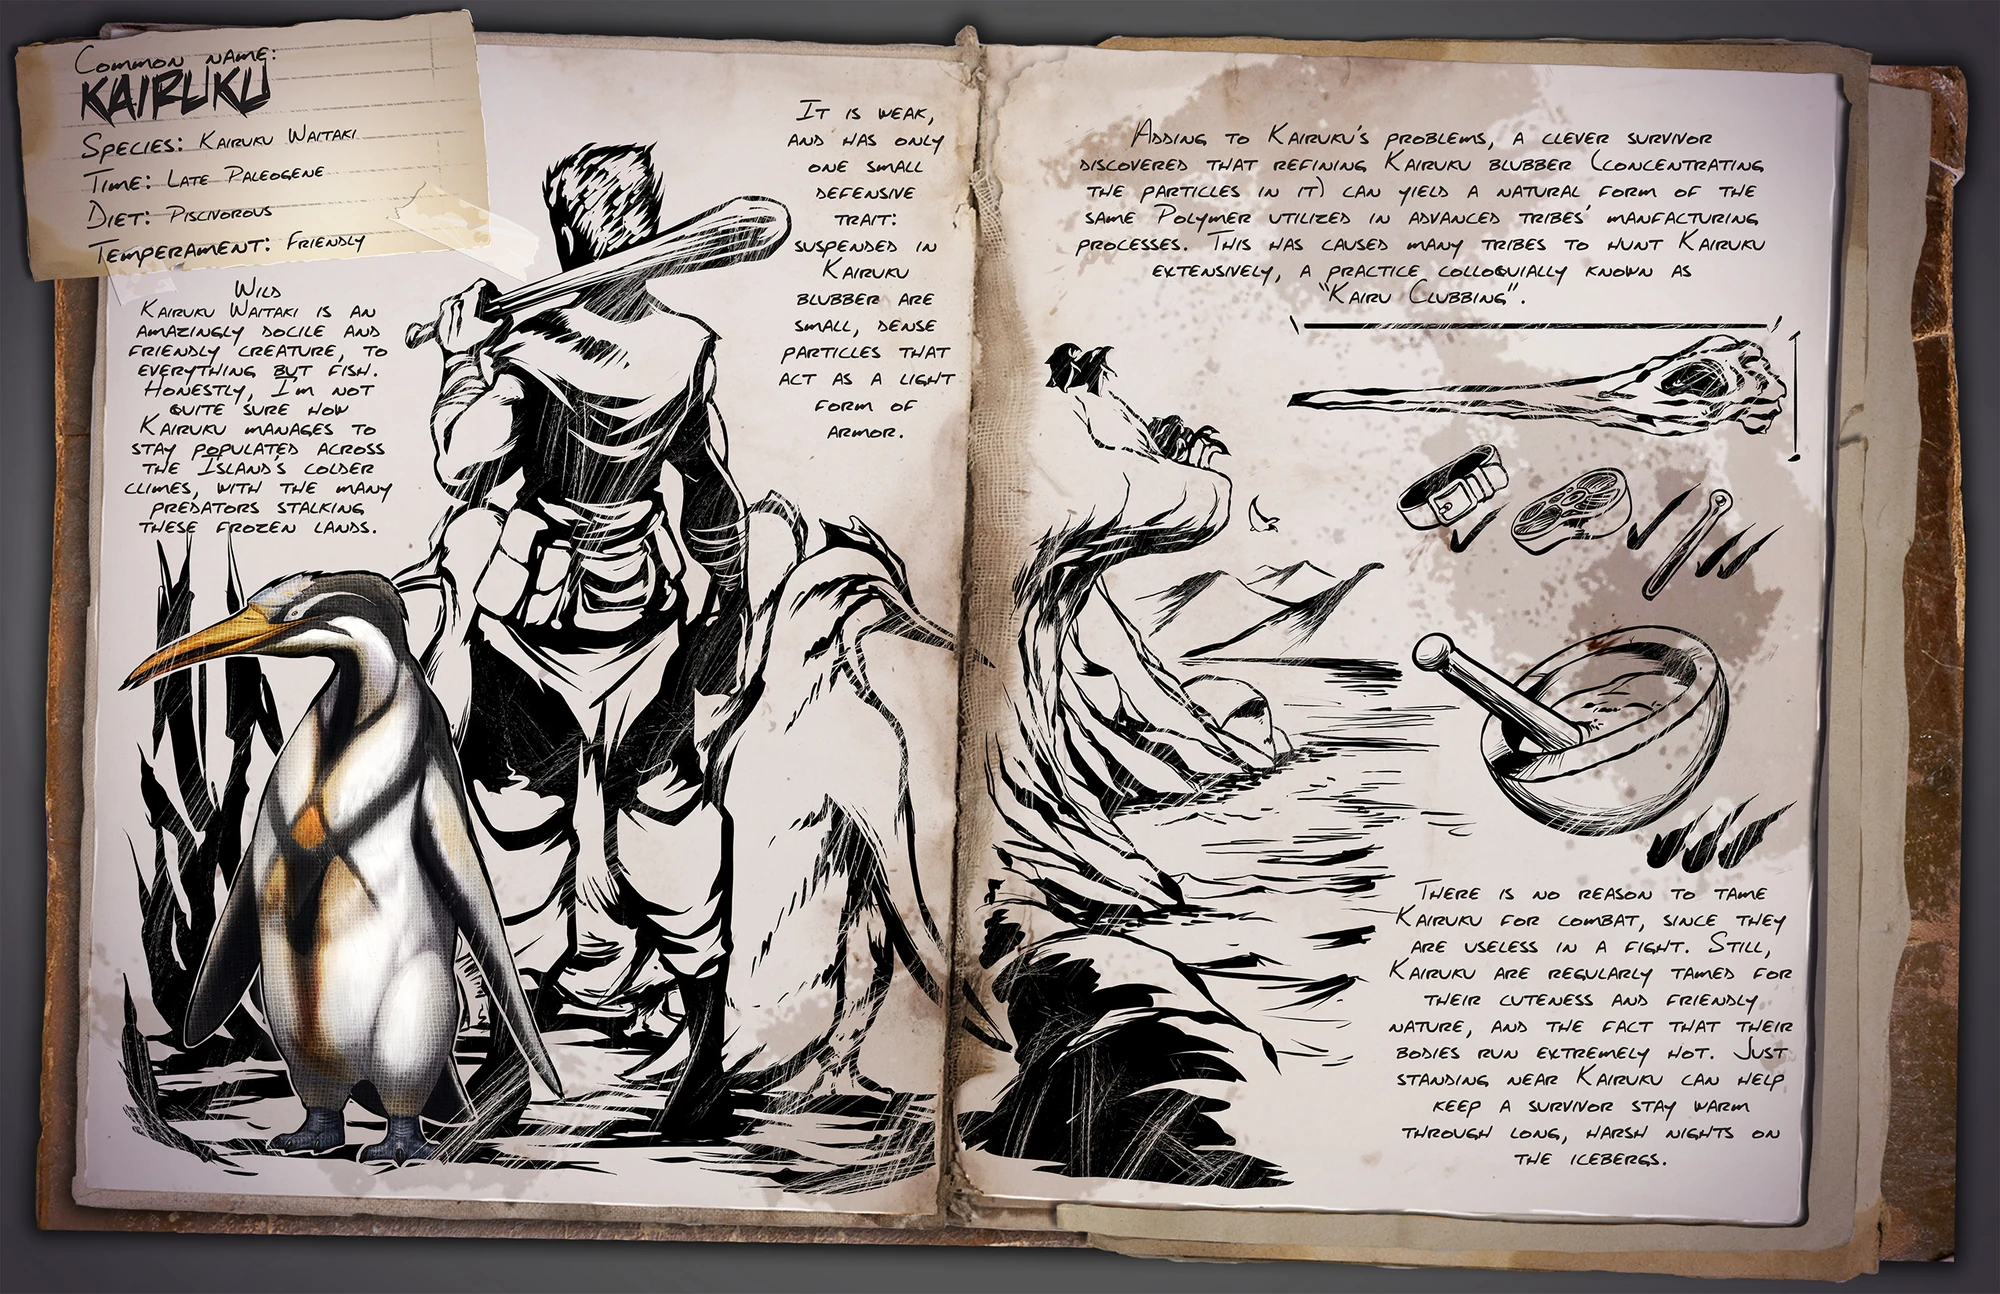 Common name:
KAIRUKU
Species: Kairuku Waitaki
Time: Late Paleogene
Diet: Piscivorous
Temperament: Friendly
Wild
Kairuku Waitaki is an
amazingly docile and
friendly creature, to
everything but fish.
Honestly, I'm not
quite sure how
Kairuku manages to
stay populated across
the Island's colder
climes, with the many
predators stalking
these frozen lands.
It is weak,
and has only
one small
defensive
trait:
suspended in
Kairuku
blubber are
small, dense
particles that
act as a light
form of
armor.
Adding to Kairuku's problems, a clever survivor
discovered that refining Kairuku blubber (concentrating
the particles in it) can yield a natural form of the
same Polymer utilized in advanced tribes' manfacturing
processes. This has caused many tribes to hunt Kairuku
extensively, a practice colloquially known as
"Kairu Clubbing".
There is no reason to tame
Kairuku for combat, since they
are useless in a fight. Still,
Kairuku are regularly tamed for
their cuteness and friendly
nature, and the fact that their
bodies run extremely hot. Just
standing near Kairuku can help
keep a survivor stay warm
through long, harsh nights on
the icebergs.